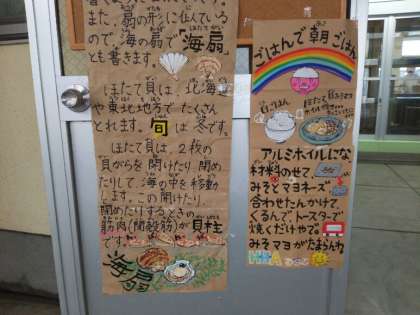 また、扇の形に似ている
ので海の扇で海扇
とも書きます。
ほたて貝は、北海道
や東北地方でたくさん
とれます。旬は冬です。
ほたて貝は、2枚の
貝がらを開けたり閉め
たりして海の中を移動
します。この開けたり、
閉めたりするときの
筋肉(閉殻筋)が貝柱
です。
海扇
ごはんで朝ごはん
白ごはん
アルミホイルにな
材料のせて、
みそとマヨネーズ
合わせたんかけて
くるんで、トースターで
焼くだけやで
みそマヨがたまらんわ